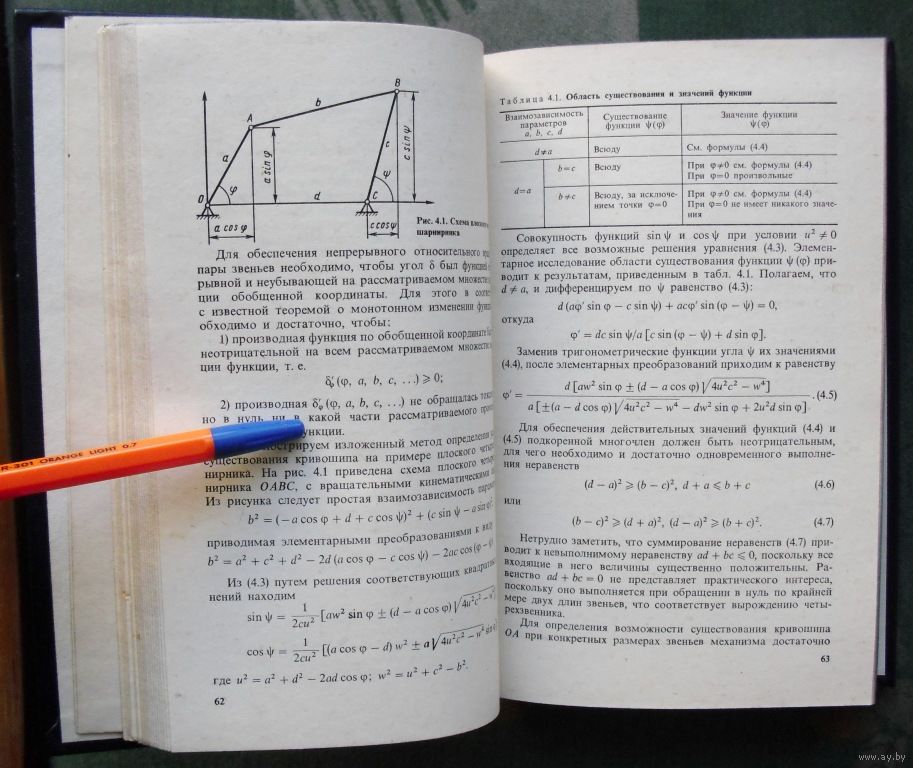 B
b
A
a
c
a sin φ
c sin ψ
φ
ψ
O
d
C
a cos φ
c cos ψ
Рис. 4.1. Схема
шарнирника
Для обеспечения непрерывного относительного
пары звеньев необходимо, чтобы угол δ был
рывной и неубывающей на рассматриваемом
ции обобщенной координаты. Для этого в
с известной теоремой о монотонном изменении
обходимо и достаточно, чтобы:
1) производная функция по обобщенной координате
неотрицательной на всем рассматриваемом
ции функции, т. е.
δ′φ (φ, a, b, c, ...) ⩾ 0;
2) производная δ′φ (φ, a, b, c, ...) не обращалась
но в нуль ни в какой части рассматриваемого
функции.
изложенный метод определения
существования кривошипа на примере плоского
нирника. На рис. 4.1 приведена схема плоского
нирника OABC, с вращательными кинематическими
Из рисунка следует простая взаимозависимость
b² = (−a cos φ + d + c cos ψ)² + (c sin ψ − a sin φ)²
приводимая элементарными преобразованиями к виду
b² = a² + c² + d² − 2d (a cos φ − c cos ψ) − 2ac cos (φ − ψ)
Из (4.3) путем решения соответствующих
нений находим
sin ψ = 1/2cu² [aw² sin φ ± (d − a cos φ) √4u²c² −
cos ψ = 1/2cu² [(a cos φ − d) w² ± a √4u²c² −
где u² = a² + d² − 2ad cos φ; w² = u² + c² − b².
62
Таблица 4.1. Область существования и значений функции
Взаимозависимость параметров a, b, c, d
Существование функции ψ(φ)
Значение функции ψ(φ)
d≠a
Всюду
См. формулы (4.4)
d=a
b=c
Всюду
При φ≠0 см. формулы (4.4)
При φ=0 произвольные
b≠c
Всюду, за исключе-
нием точки φ=0
При φ≠0 см. формулы (4.4)
При φ=0 не имеет никакого значе-
ния
Совокупность функций sin ψ и cos ψ при условии u² ≠ 0
определяет все возможные решения уравнения (4.3). Элемен-
тарное исследование области существования функции ψ (φ) при-
водит к результатам, приведенным в табл. 4.1. Полагаем, что
d ≠ a, и дифференцируем по ψ равенство (4.3):
d (aφ′ sin φ − c sin ψ) + acφ′ sin (φ − ψ) = 0,
откуда
φ′ = dc sin ψ/a [c sin (φ − ψ) + d sin φ].
Заменив тригонометрические функции угла ψ их значениями
(4.4), после элементарных преобразований приходим к равенству
φ′ = d [aw² sin φ ± (d − a cos φ) √4u²c² − w⁴] / a [±(a − d cos φ) √4u²c² − w⁴ − dw² sin φ + 2u²d sin φ] . (4.5)
Для обеспечения действительных значений функций (4.4) и
(4.5) подкоренной многочлен должен быть неотрицательным,
для чего необходимо и достаточно одновременного выполне-
ния неравенств
(d − a)² ⩾ (b − c)², d + a ⩽ b + c (4.6)
или
(b − c)² ⩾ (d + a)², (d − a)² ⩾ (b + c)². (4.7)
Нетрудно заметить, что суммирование неравенств (4.7) при-
водит к невыполнимому неравенству ad + bc ⩽ 0, поскольку все
входящие в него величины существенно положительны. Ра-
венство ad + bc = 0 не представляет практического интереса,
поскольку оно выполняется при обращении в нуль по крайней
мере двух длин звеньев, что соответствует вырождению четы-
рехзвенника.
Для определения возможности существования кривошипа
OA при конкретных размерах звеньев механизма достаточно
63
R-301 ORANGE LIGHT 0.7
www.ay.by